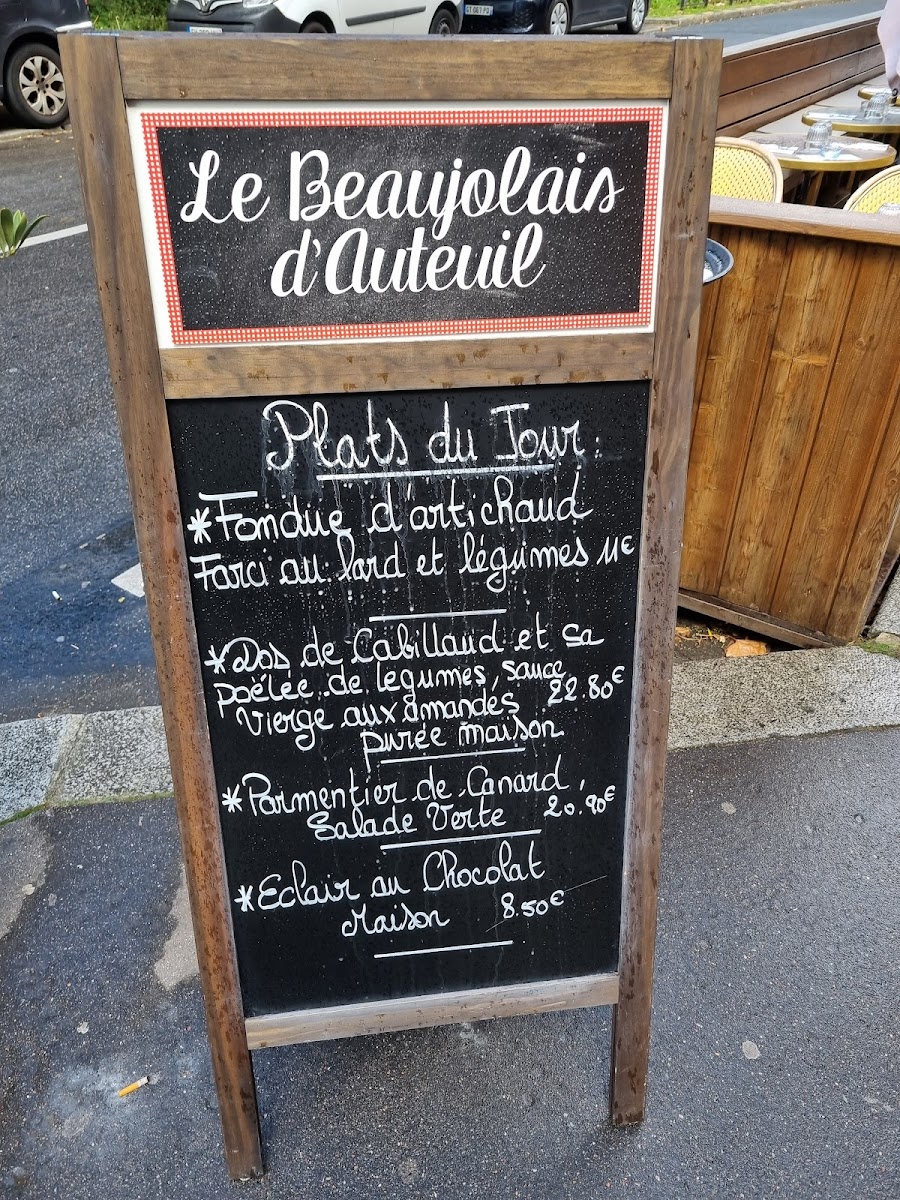 Le Beaujolais
d'Auteuil
Plats du Jour:
*Fondue d'artichaud
Farci au lard et légumes 11€
*Dos de Cabillaud et sa
poêlée de légumes, sauce
Vierge aux amandes 22.80€
purée maison
*Parmentier de Canard,
Salade Verte 20.90€
*Eclair au Chocolat
Maison 8.50€